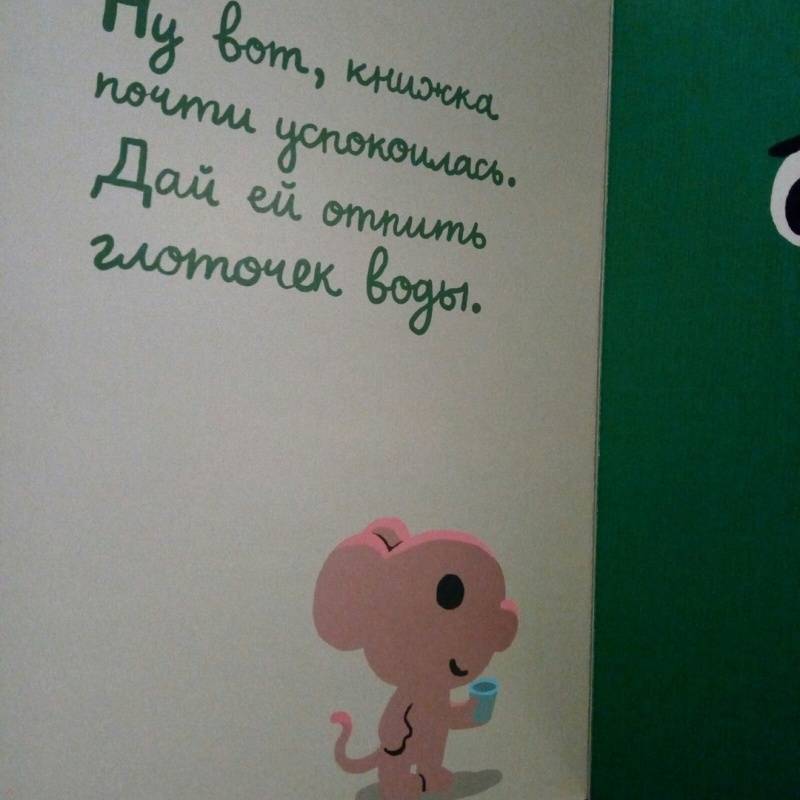 Ну вот, книжка
почти успокоилась.
Дай ей отпить
глоточек воды.